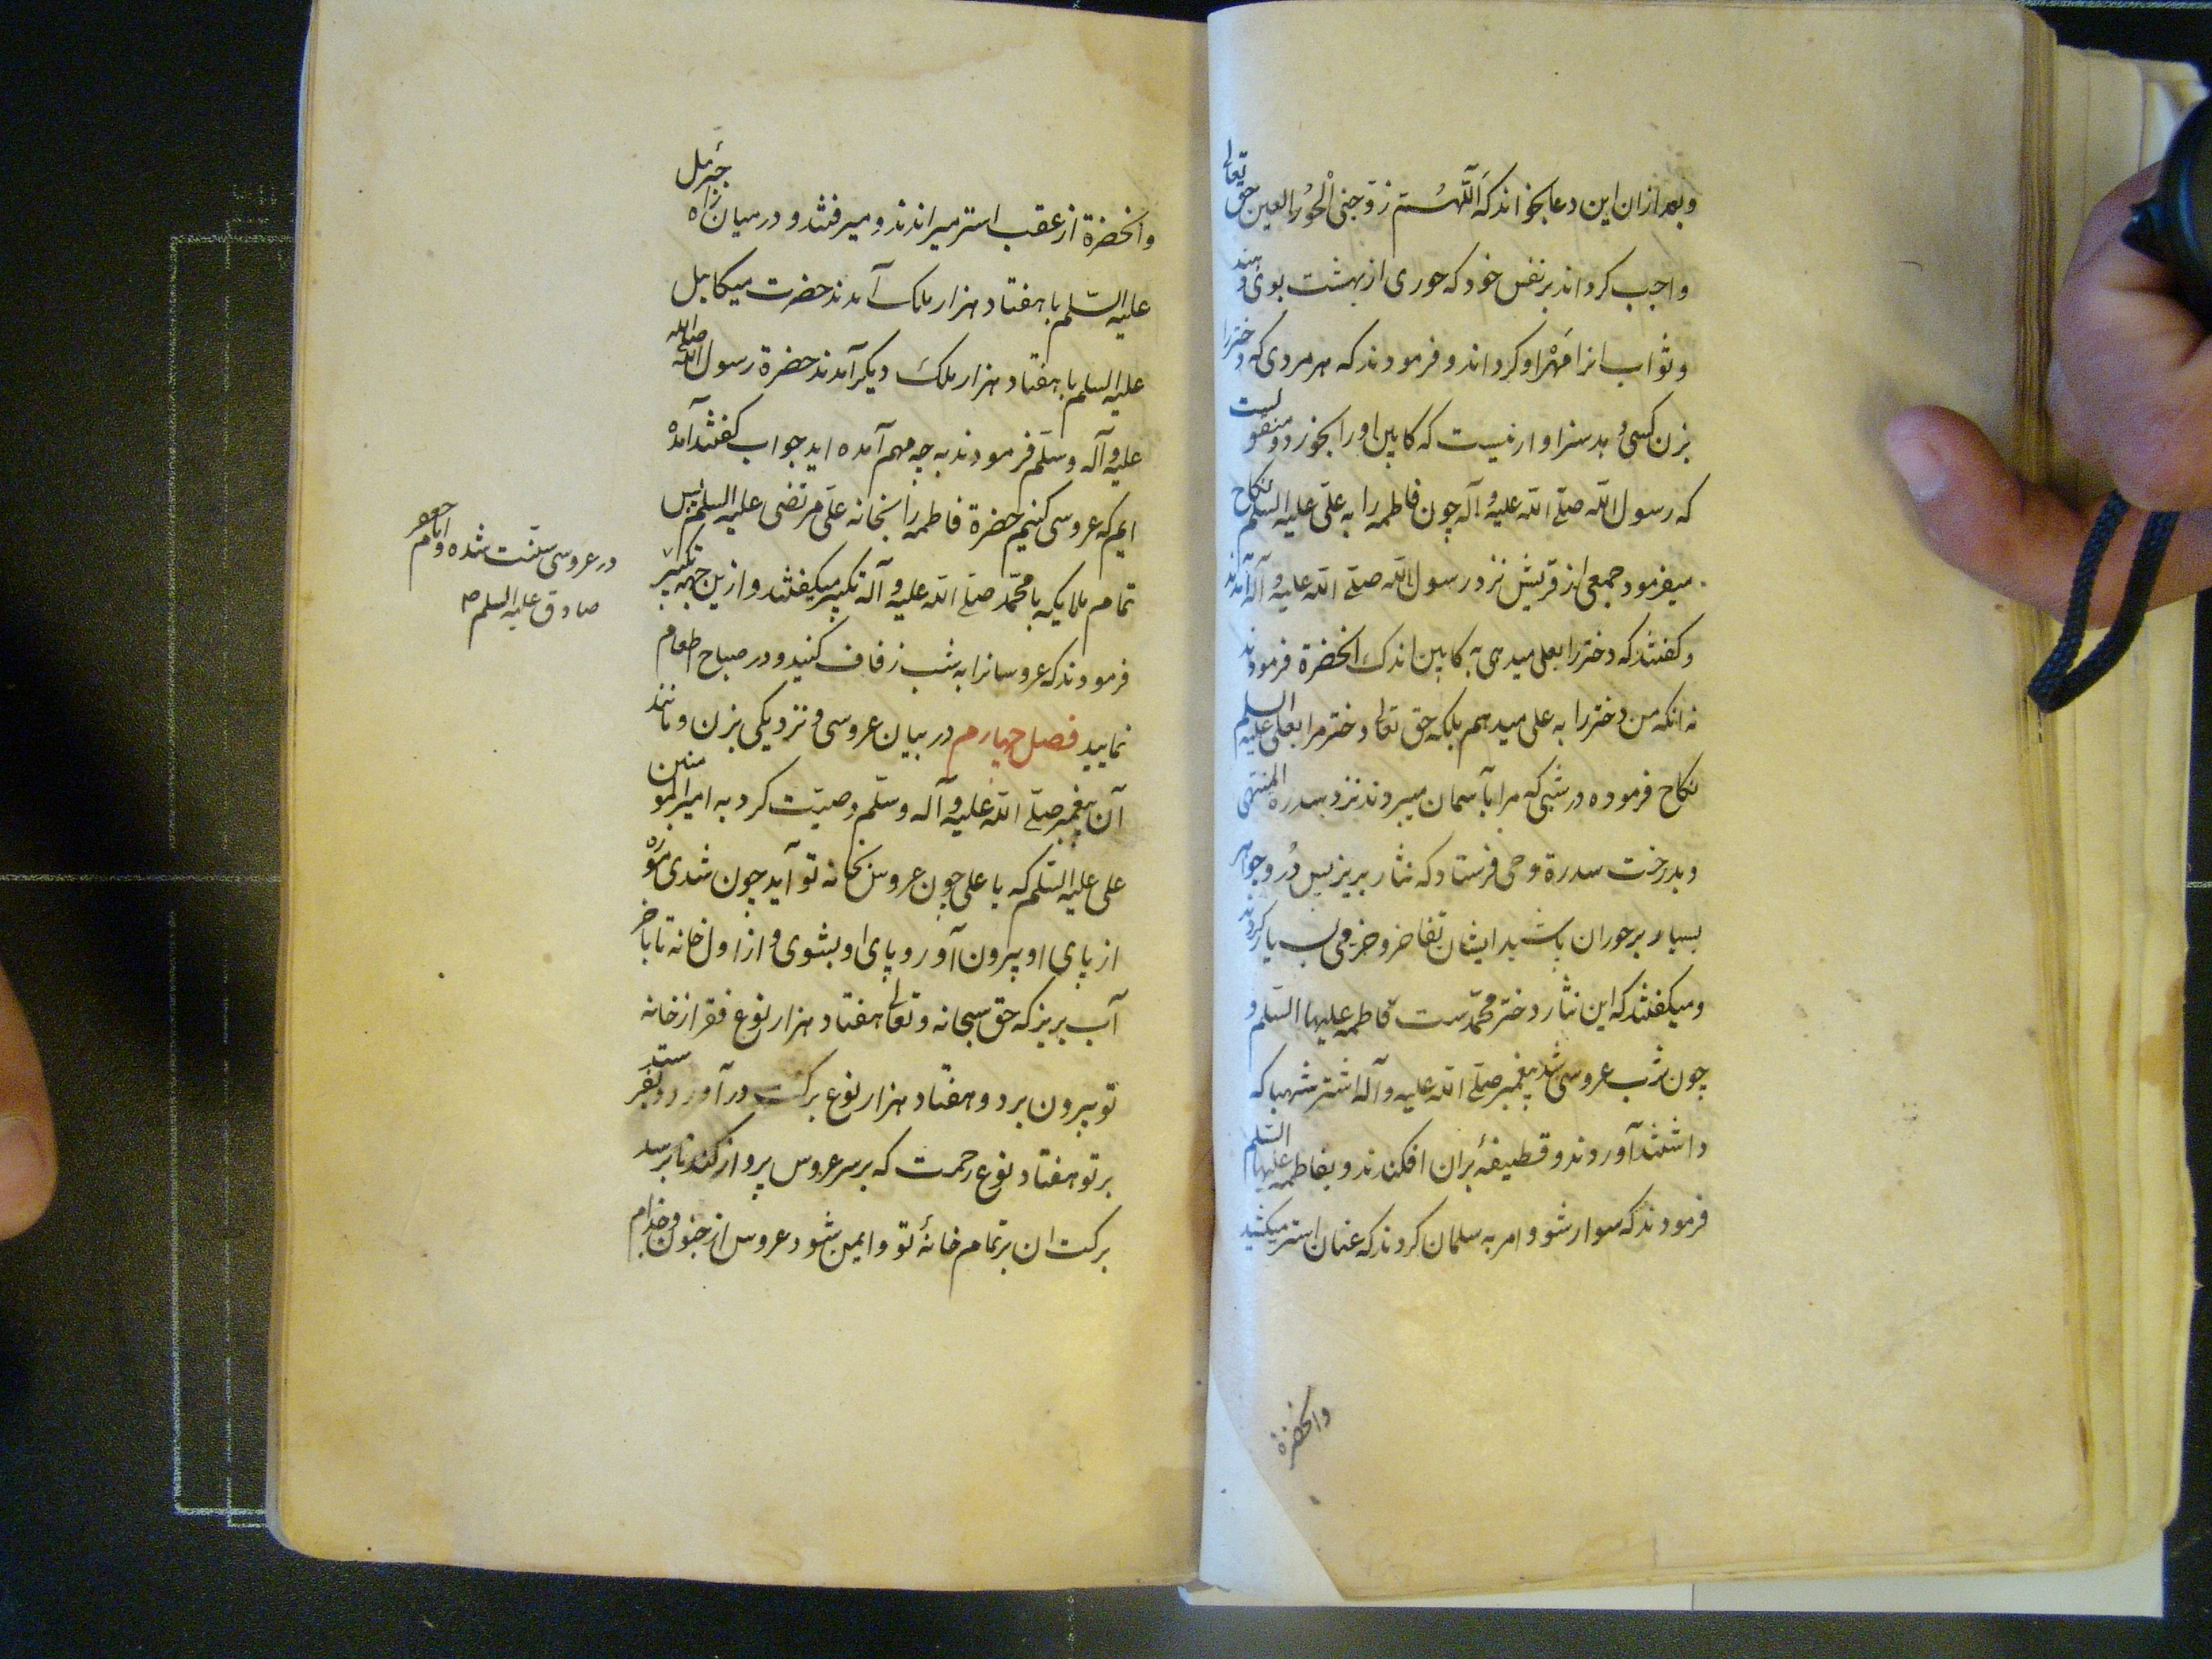 وبعد ازان این دعا بخواند که اَللّهُمَّ زوّجنی الْحُورالعین حق تعالی
واجب کرداند بر نفس خود که حوری از بهشت بوی دهند
وثواب انرا مَهْر او کرداند و فرمودند که هر مردی که دختر را
بزن کسی دهد سزاوار نیست که کابین اورا بخورد و منقولست
که رسول الله صلّی الله علیه وآله چون فاطمه را به علیّ علیه السّلم نکاح
میفرمود جمعی از قریش نزد رسول الله صلّی الله علیه وآله آمدند
وکفتند که دختر را بعلی میدهی به کابین اندک انحضرة فرمودند
نه انکه من دختر را به علی میدهم بلکه حق تعالی دختر مرا بعلی علیه السلم
نکاح فرموده در شبی که مرا بآسمان میبردند نزد سدرة المنتهی
وبدرخت سدرة وحی فرستاد که نثار بریز پس دُر وجواهر
بسیار بر حوران پاشید ایشان تفاخر و خرمی بسیار کردند
ومیکفتند که این نثار دختر محمّدست فاطمه علیها السّلم و
چون شب عروسی شد پیغمبر صلّی الله علیه وآله اشتر شهبا که
داشتند آوردند و قطیفهٔ بران افکندند و بفاطمه علیها السّلم
فرمودند که سوار شو و امر به سلمان کردند که عنان استر میکشید
وانحضرة
وانحضرة از عقب استر میراندند و میرفتند و در میان راه جبرئیل
علیه السّلم با هفتاد هزار ملک آمدند حضرت میکاییل
علیه السلم با هفتاد هزار ملک دیکر آمدند حضرة رسول الله صلی الله
علیه وآله وسلّم فرمودند به چه مهم آمده اید جواب کفتند آمده
ایم که عروسی کنیم حضرة فاطمه را بخانه علی مرتضی علیه السلم پس
تمام ملایکه با محمّد صلّی الله علیه وآله تکبیر میکفتند و ازین جهه تکبیر
در عروسی سنّت شده و امام جعفر
صادق علیه السلم
فرمودند که عروسانرا به شب زفاف کنید و در صباح طعام
نمایید فصل چهارم در بیان عروسی و نزدیکی بزن و مانند
آن پیغمبر صلّی الله علیه وآله وسلّم وصیّت کرد به امیر المومنین
علی علیه السّلم که یا علی چون عروس بخانه تو آید چون شدی موزه
از پای او بیرون آور و پای او بشوی و از اول خانه تا باخر
آب بریز که حق سبحانه وتعالی هفتاد هزار نوع فقر از خانه
تو بیرون برد و هفتاد هزار نوع برکت در آورد و بفرستد
بر تو هفتاد نوع رحمت که بر سر عروس پرواز کند تا برسد
برکت ان بر تمام خانهٔ تو و ایمن شود عروس از جنون و جذام